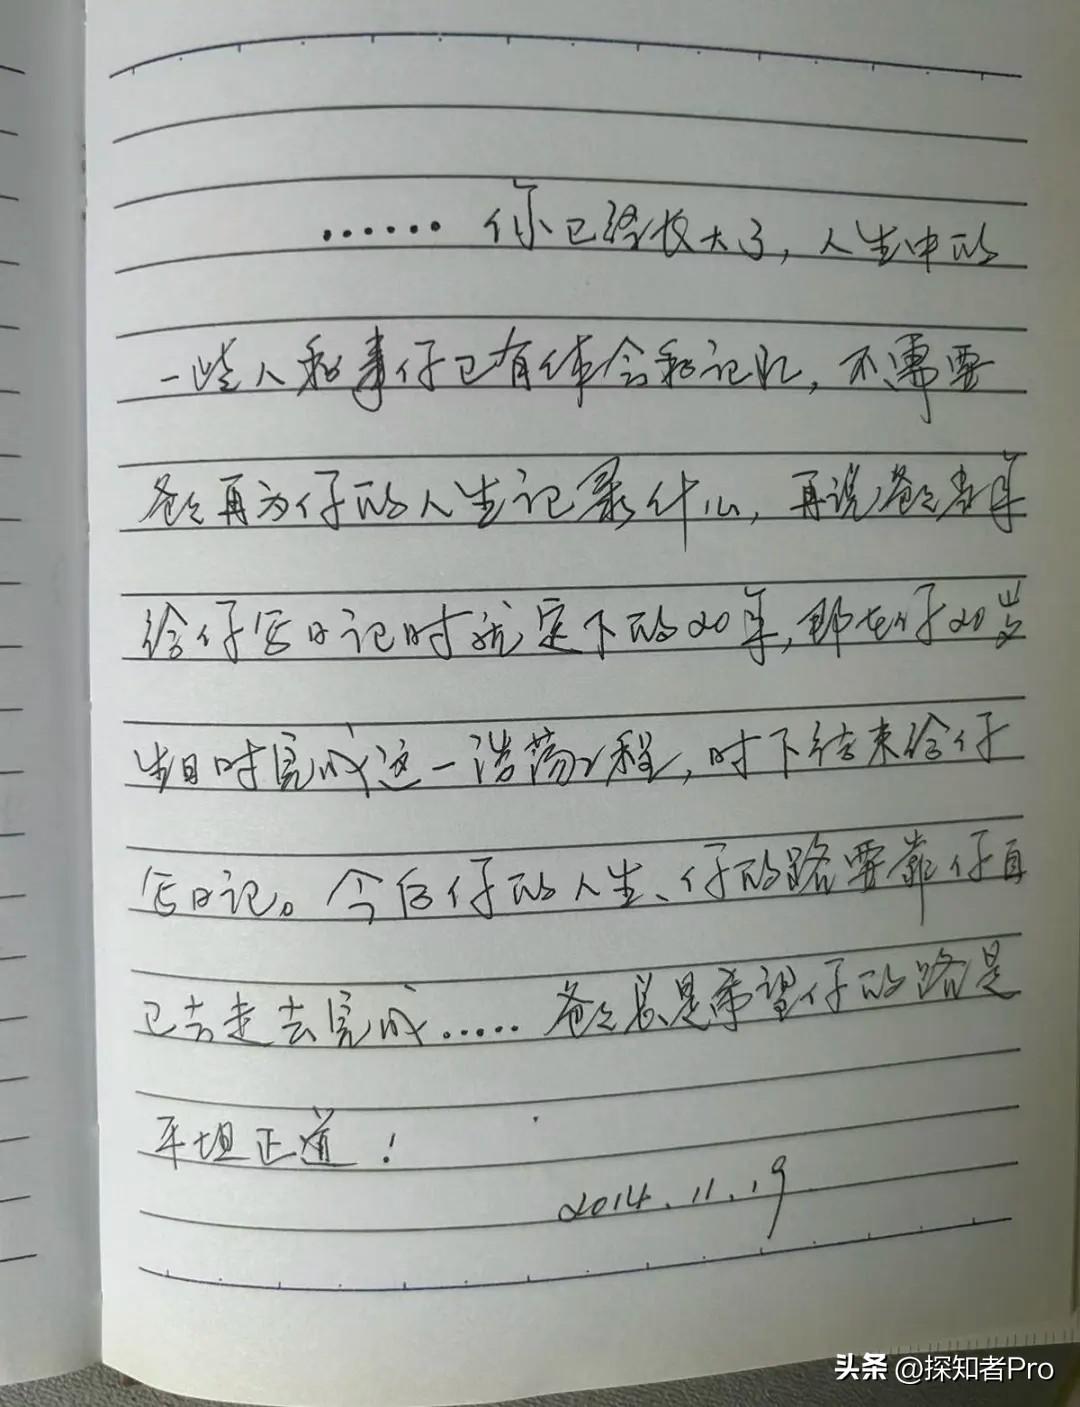 ……你已经长大了，人生中的
一些人和事仔已有体会和记忆，不需要
爸爸再为仔的人生记录什么，再说爸爸当年
给仔写日记时就定下的20年，那在仔20岁
生日时完成这一浩荡工程，时下结束给仔
写日记。今后仔的人生、仔的路要靠仔自
己去走去完成……爸爸总是希望仔的路是
平坦正道！
2014.11.19
头条 @探知者Pro